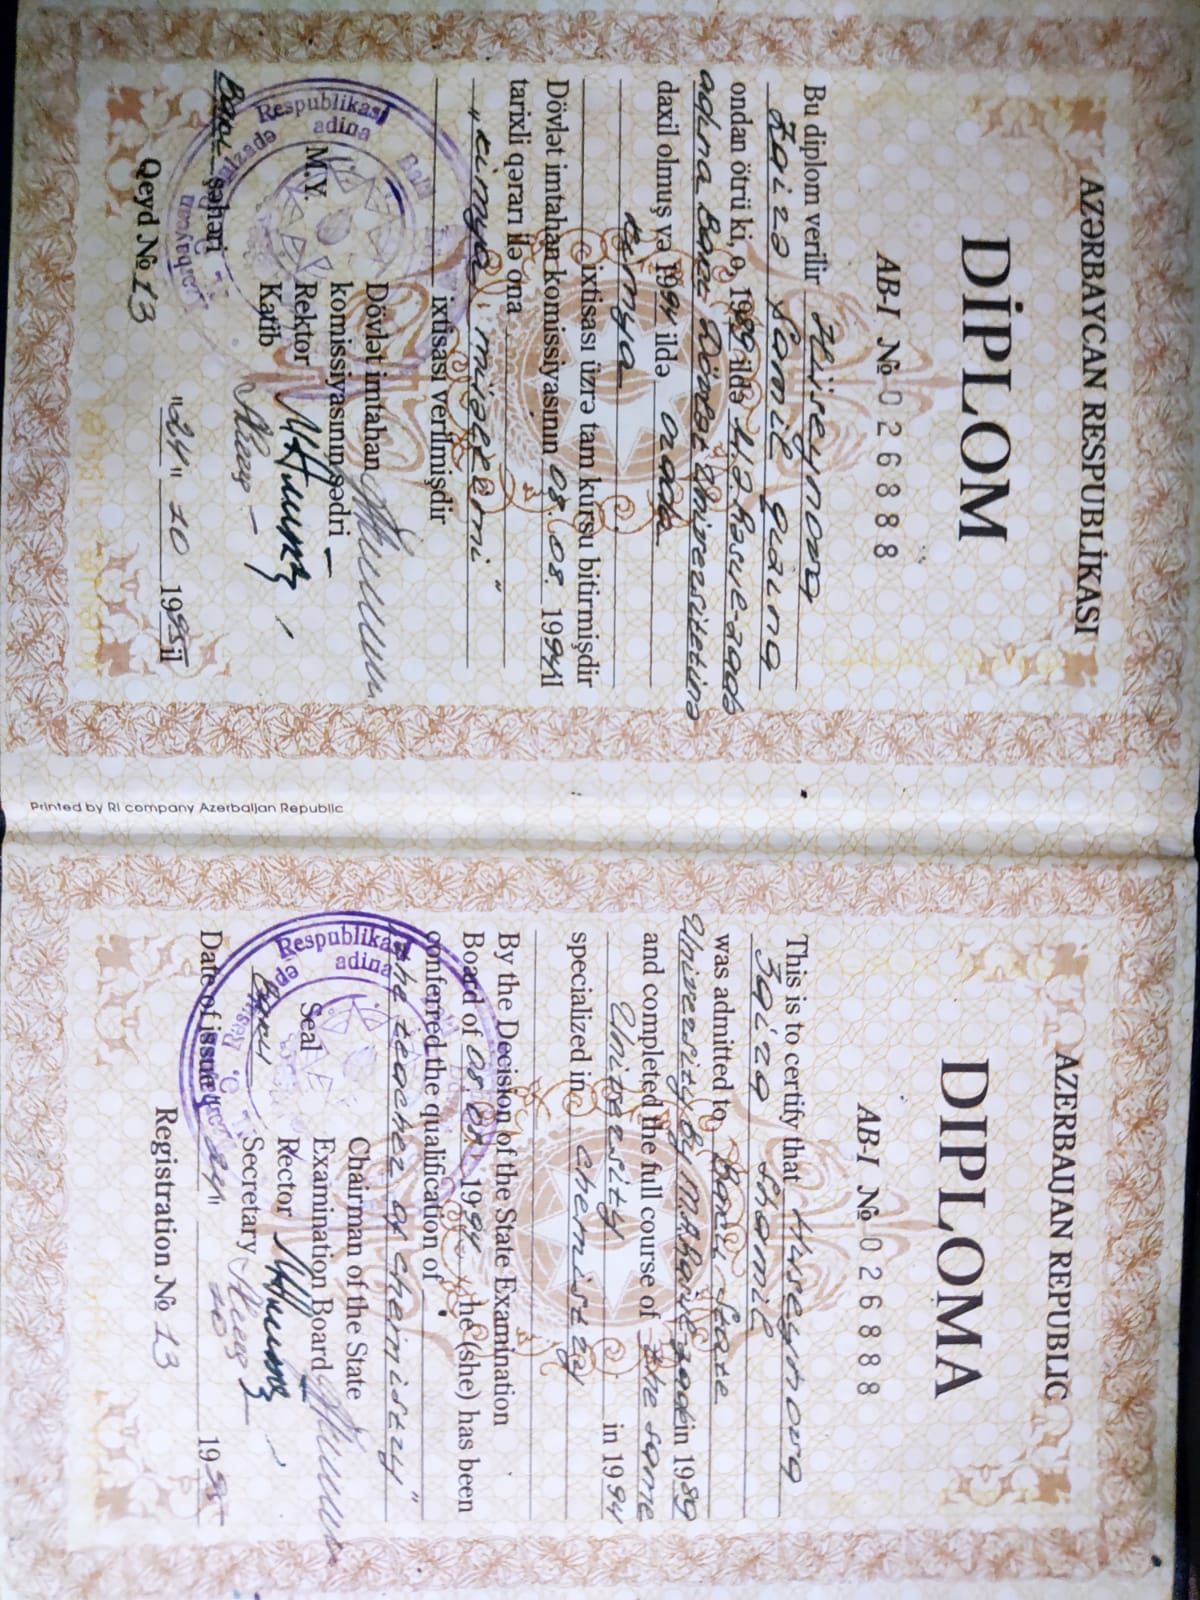 AZƏRBAYCAN RESPUBLİKASI
DİPLOM
AB-I № 026888
Bu diplom verilir Hüseynova
Zaizə Şamil qızına
ondan ötrü ki, o, 1989 ildə M.Ə.Rəsulzadə
adına Bakı Dövlət Universitetinə
daxil olmuş və 1994 ildə orada
kimya
ixtisası üzrə tam kursu bitirmişdir
Dövlət imtahan komissiyasının 08.08. 1994 il
tarixli qərarı ilə ona
"kimya müəllimi"
ixtisası verilmişdir
Dövlət imtahan
komissiyasının sədri
M.Y. Rektor
Katib
Bakı şəhəri
"24" 20 1995 il
Qeyd № 13
Respublikası
adına
Printed by RI company Azerbaijan Republic
AZERBAIJAN REPUBLIC
DIPLOMA
AB-I № 026888
This is to certify that Huseynova
Zaiza Shamil
was admitted to Baku State
University by M.A.Rasulzade in 1989
and completed the full course of the same
University in 1994
specialized in chemistry
By the Decision of the State Examination
Board of 08.08. 1994 he (she) has been
conferred the qualification of
"the teacher of chemistry"
Chairman of the State
Examination Board
Seal Rector
Baku Secretary
Date of issue "24" 20 1995
Registration № 13
Respublikası
adına